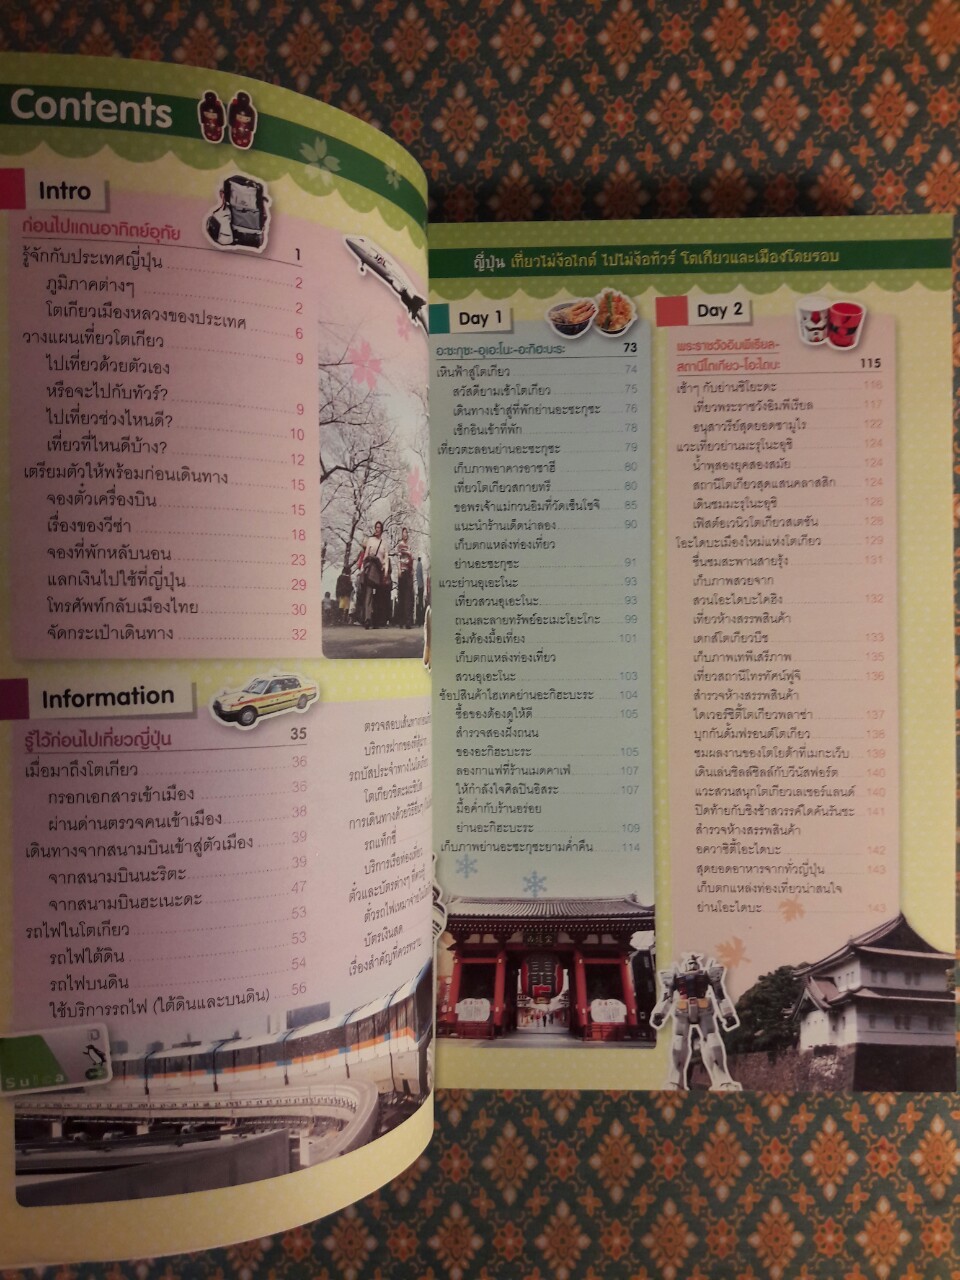 Contents
Intro
ก่อนไปแดนอาทิตย์อุทัย 1
รู้จักกับประเทศญี่ปุ่น 2
ภูมิภาคต่างๆ 2
โตเกียวเมืองหลวงของประเทศ 6
วางแผนเที่ยวโตเกียว 9
ไปเที่ยวด้วยตัวเอง
หรือจะไปกับทัวร์? 9
ไปเที่ยวช่วงไหนดี? 10
เที่ยวที่ไหนดีบ้าง? 12
เตรียมตัวให้พร้อมก่อนเดินทาง 15
จองตั๋วเครื่องบิน 15
เรื่องของวีซ่า 18
จองที่พักหลับนอน 23
แลกเงินไปใช้ที่ญี่ปุ่น 29
โทรศัพท์กลับเมืองไทย 30
จัดกระเป๋าเดินทาง 32
Information
รู้ไว้ก่อนไปเที่ยวญี่ปุ่น 35
เมื่อมาถึงโตเกียว 36
กรอกเอกสารเข้าเมือง 36
ผ่านด่านตรวจคนเข้าเมือง 38
เดินทางจากสนามบินเข้าสู่ตัวเมือง 39
จากสนามบินนะริตะ 39
จากสนามบินฮะเนะดะ 47
รถไฟในโตเกียว 53
รถไฟใต้ดิน 53
รถไฟบนดิน 54
ใช้บริการรถไฟ (ใต้ดินและบนดิน) 56
ตรวจสอบเส้นทางก่อน
บริการฝากของที่
รถบัสประจำทางใน
การเดินทางด้วยวิธีอื่นๆ
รถแท็กซี่
บริการเรือท่องเที่ยว
ตั๋วและบัตรต่างๆ
บัตรเงินสด
เรื่องสำคัญที่ควรทราบ
Suica
ญี่ปุ่น เที่ยวไม่ง้อไกด์ ไปไม่ง้อทัวร์ โตเกียวและเมืองโดยรอบ
Day 1
อะซะกุซะ-อุเอะโนะ-อะกิฮะบะระ 73
เหินฟ้าสู่โตเกียว 74
สวัสดียามเช้าโตเกียว 75
เดินทางเข้าสู่ที่พักย่านอะซะกุซะ 76
เช็กอินเข้าที่พัก 78
เที่ยวตะลอนย่านอะซะกุซะ 79
เก็บภาพอาคารอาซาฮี 80
เที่ยวโตเกียวสกายทรี 80
ขอพรเจ้าแม่กวนอิมที่วัดเซ็นโซจิ 85
แนะนำร้านเด็ดน่าลอง 90
เก็บตกแหล่งท่องเที่ยว
ย่านอะซะกุซะ 91
แวะย่านอุเอะโนะ 93
เที่ยวสวนอุเอะโนะ 93
ถนนละลายทรัพย์อะเมะโยะโกะ 99
อิ่มท้องมื้อเที่ยง 101
เก็บตกแหล่งท่องเที่ยว
สวนอุเอะโนะ 103
ช้อปสินค้าไฮเทคย่านอะกิฮะบะระ 104
ซื้อของต้องดูให้ดี 105
สำรวจสองฝั่งถนน
ของอะกิฮะบะระ 105
ลองกาแฟที่ร้านเมดคาเฟ่ 107
ให้กำลังใจศิลปินอิสระ 107
มื้อค่ำกับร้านอร่อย
ย่านอะกิฮะบะระ 109
เก็บภาพย่านอะซะกุซะยามค่ำคืน 114
Day 2
พระราชวังอิมพีเรียล-
สถานีโตเกียว-โอะไดบะ 115
เช้าๆ กับย่านชิโยะดะ 116
เที่ยวพระราชวังอิมพีเรียล 117
อนุสาวรีย์สุดยอดซามูไร 122
แวะเที่ยวย่านมะรุโนะอุชิ 124
น้ำพุสองยุคสองสมัย 124
สถานีโตเกียวสุดแสนคลาสสิก 124
เดินชมมะรุโนะอุชิ 126
เฟิสต์อเวนิวโตเกียวสเตชัน 128
โอะไดบะเมืองใหม่แห่งโตเกียว 129
ชื่นชมสะพานสายรุ้ง 131
เก็บภาพสวยจาก
สวนโอะไดบะไคฮิง 132
เที่ยวห้างสรรพสินค้า
เดกส์โตเกียวบีช 133
เก็บภาพเทพีเสรีภาพ 135
เที่ยวสถานีโทรทัศน์ฟูจิ 136
สำรวจห้างสรรพสินค้า
ไดเวอร์ซิตี้โตเกียวพลาซ่า 137
บุกกันดั้มฟรอนต์โตเกียว 138
ชมผลงานของโตโยต้าที่เมกะเว็บ 139
เดินเล่นชิลล์ชิลล์กับวีนัสฟอร์ต 140
แวะสวนสนุกโตเกียวเลเชอร์แลนด์ 140
ปิดท้ายกับชิงช้าสวรรค์ไดคันรันชะ 141
สำรวจห้างสรรพสินค้า
อควาซิตี้โอะไดบะ 142
สุดยอดอาหารจากทั่วญี่ปุ่น 143
เก็บตกแหล่งท่องเที่ยวน่าสนใจ
ย่านโอะไดบะ 143